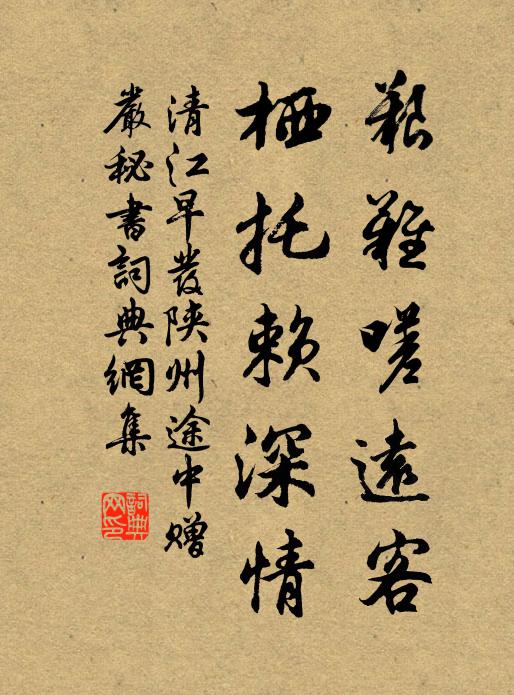 艱難嗟遠客
栖托賴深情
清江早發陝州途中贈
嚴秘書詞典網集
詞典
网印